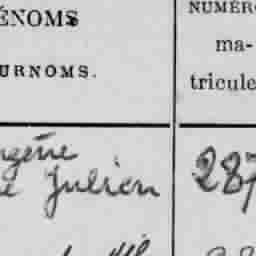 ÉNOMS
URNOMS.
NUMÉRO
ma-
tricule
ugène
e Julien
287